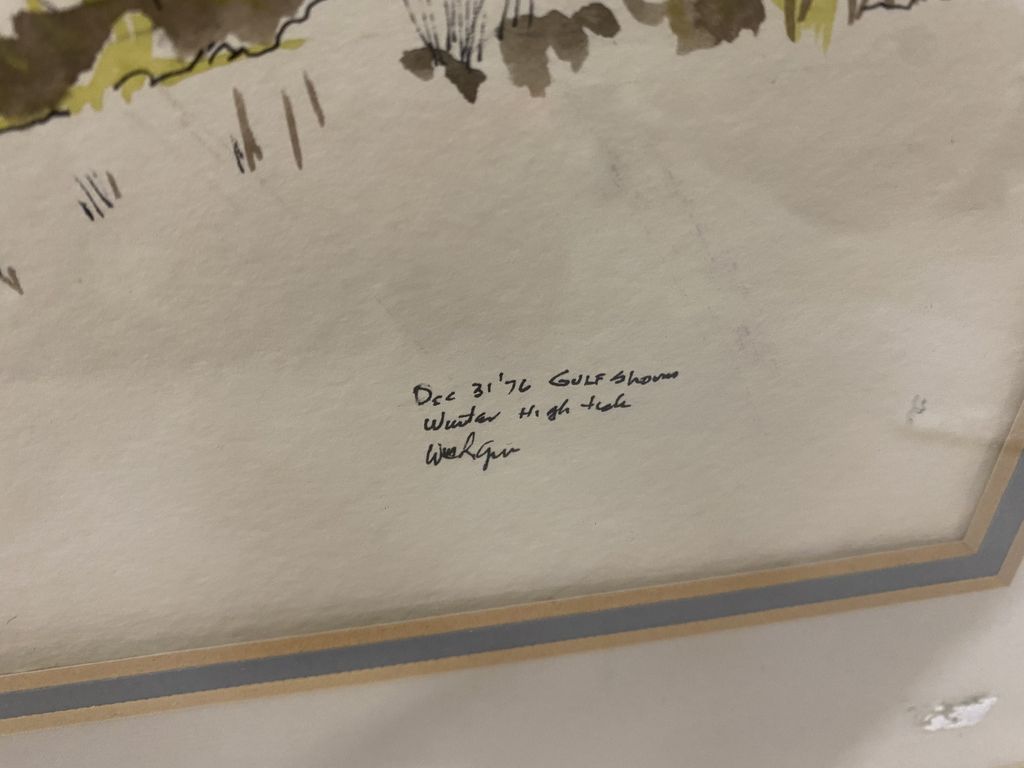 Dec 31 '76 GULF Shores
Winter High tide